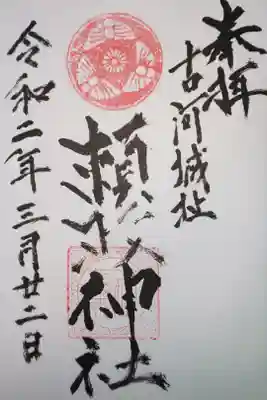 奉拝
古河城址
頼政神社
令和二年三月廿二日